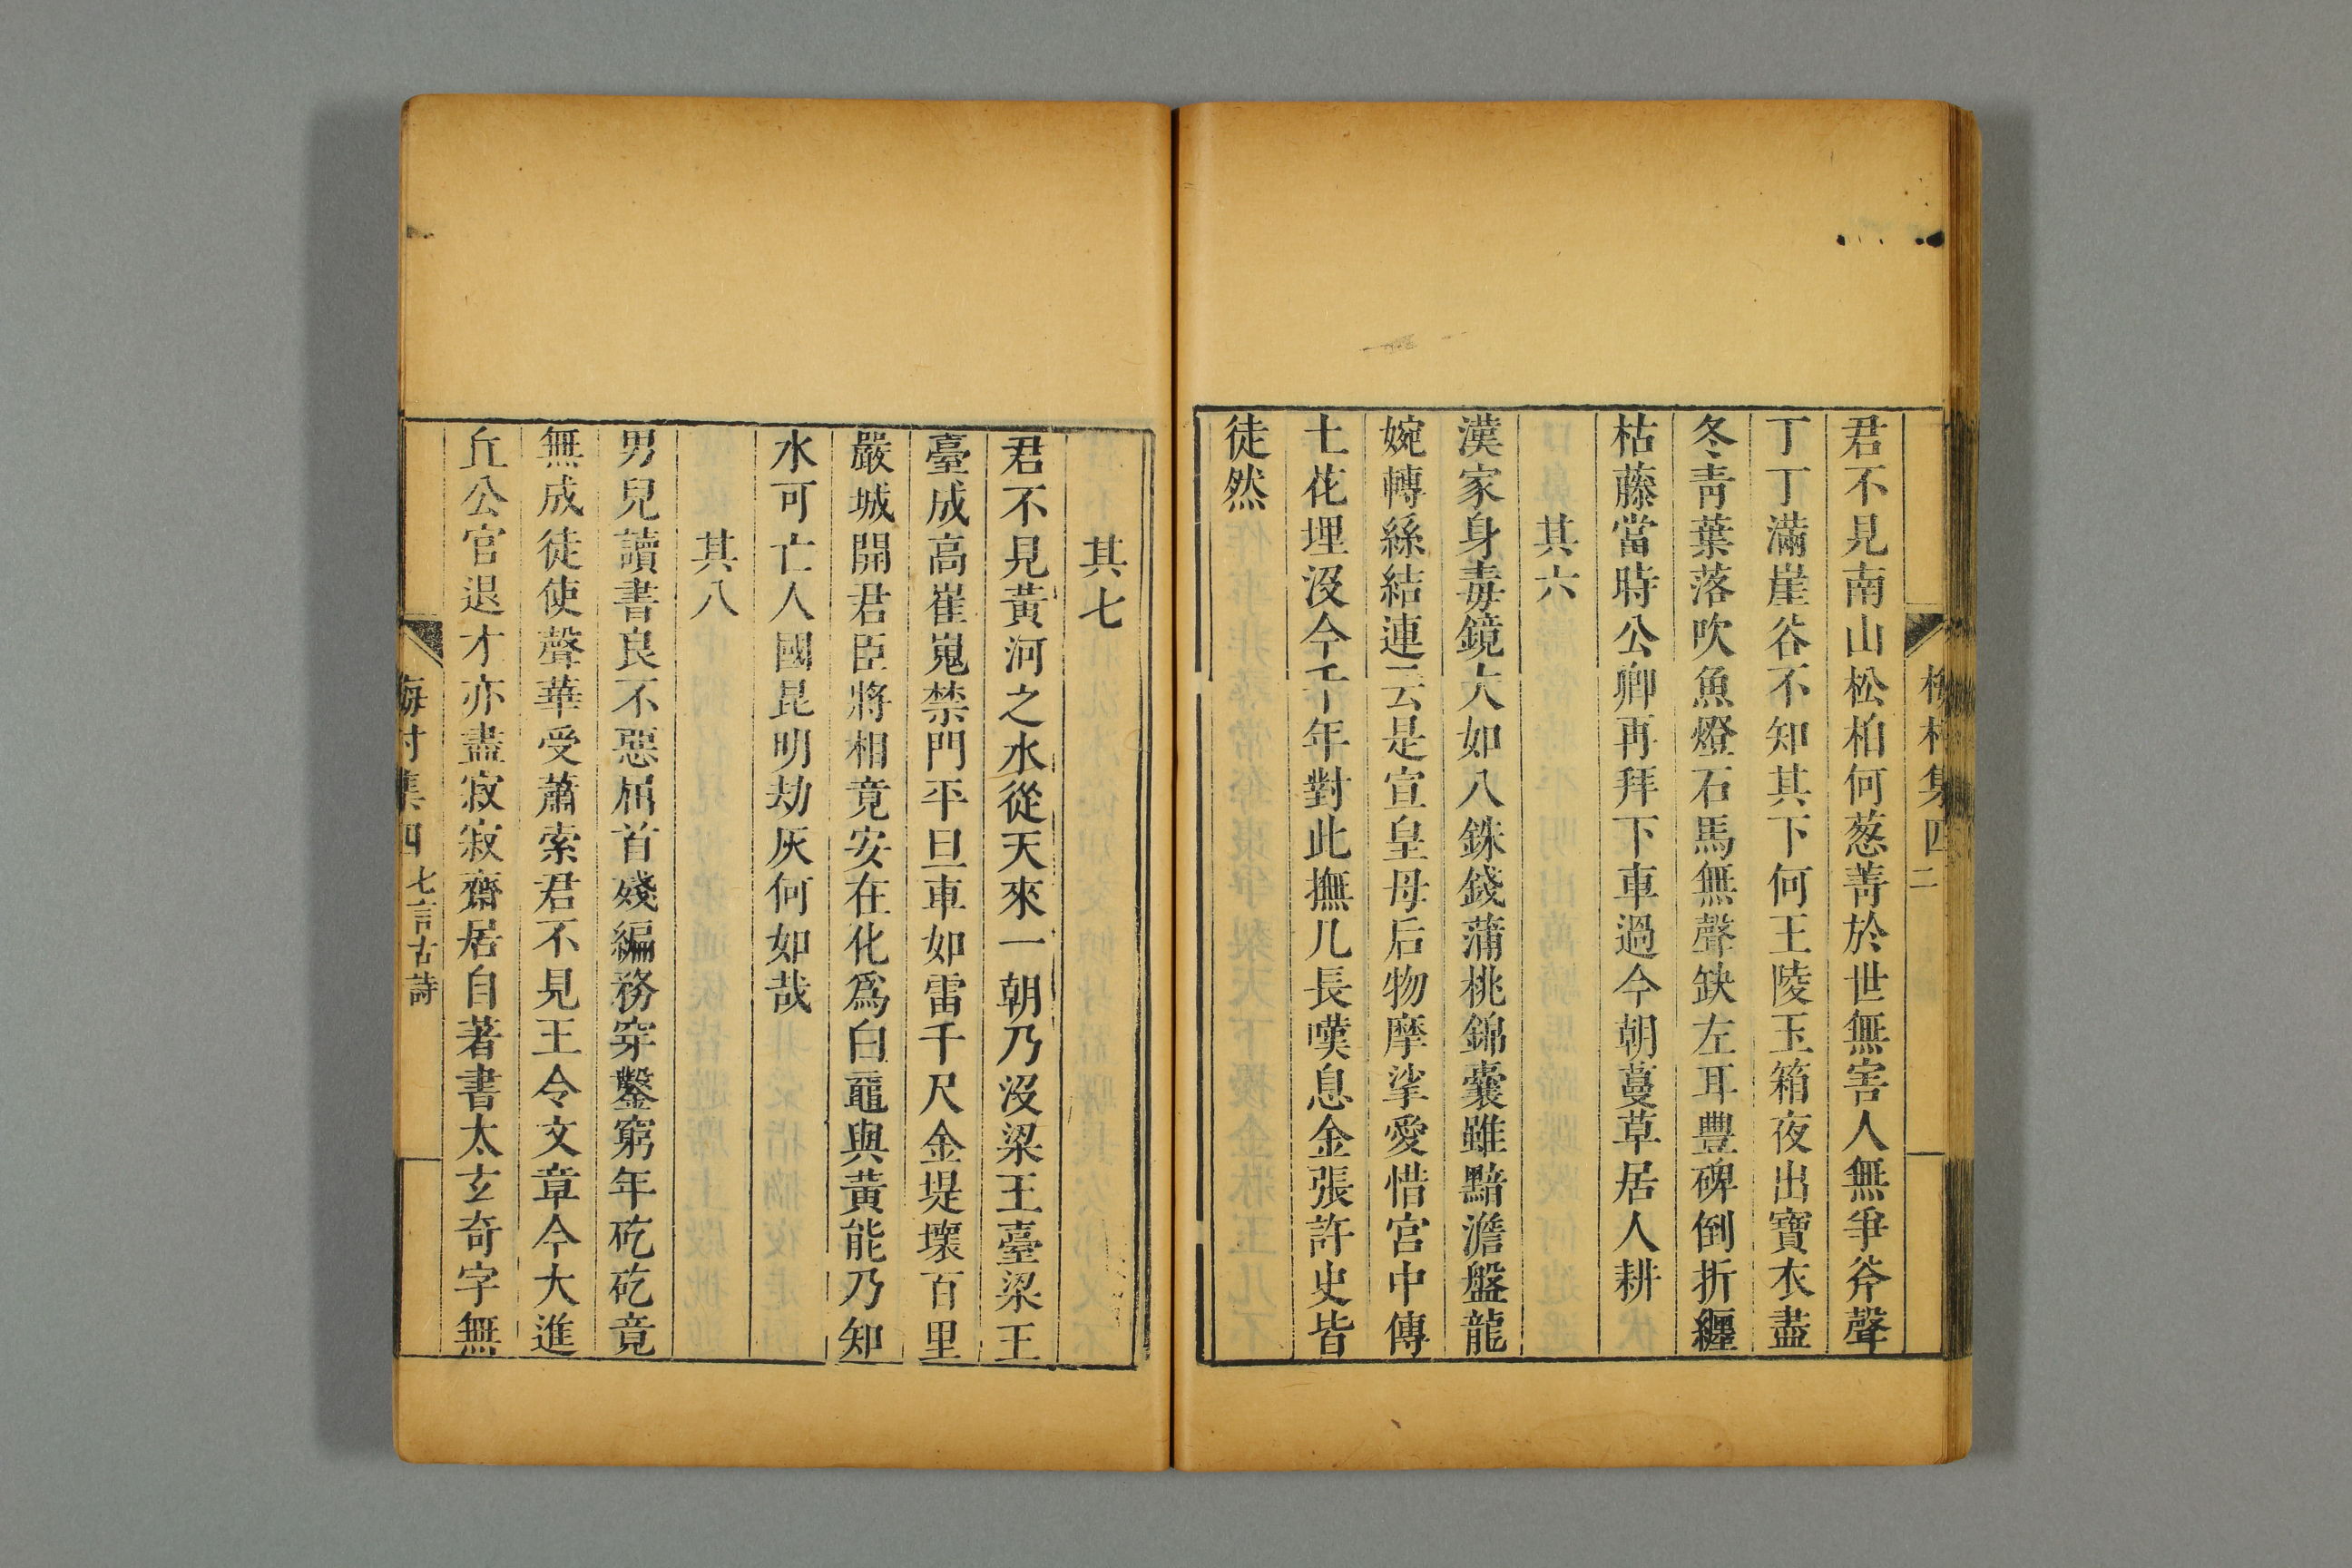 梅村集四
二
君不見南山松柏何葱菁於世無害人無爭斧聲
丁丁滿崖谷不知其下何王陵玉箱夜出寶衣盡
冬靑葉落吹魚燈石馬無聲缺左耳豐碑倒折纒
枯藤當時公卿再拜下車過今朝蔓草居人耕
其六
漢家身毒鏡大如八銖錢蒲桃錦囊雖黯澹盤龍
婉轉絲結連云是宣皇母后物摩挲愛惜宮中傳
土花埋沒今千年對此撫几長嘆息金張許史皆
徒然
其七
君不見黃河之水從天來一朝乃沒梁王臺梁王
臺成高崔嵬禁門平旦車如雷千尺金堤壞百里
嚴城開君臣將相竟安在化爲白黿與黃能乃知
水可亡人國昆明劫灰何如哉
其八
男兒讀書良不惡屈首殘編務穿鑿窮年矻矻竟
無成徒使聲華受蕭索君不見王令文章今大進
丘公官退才亦盡寂寂齋居自著書太玄奇字無
梅村集四 七言古詩